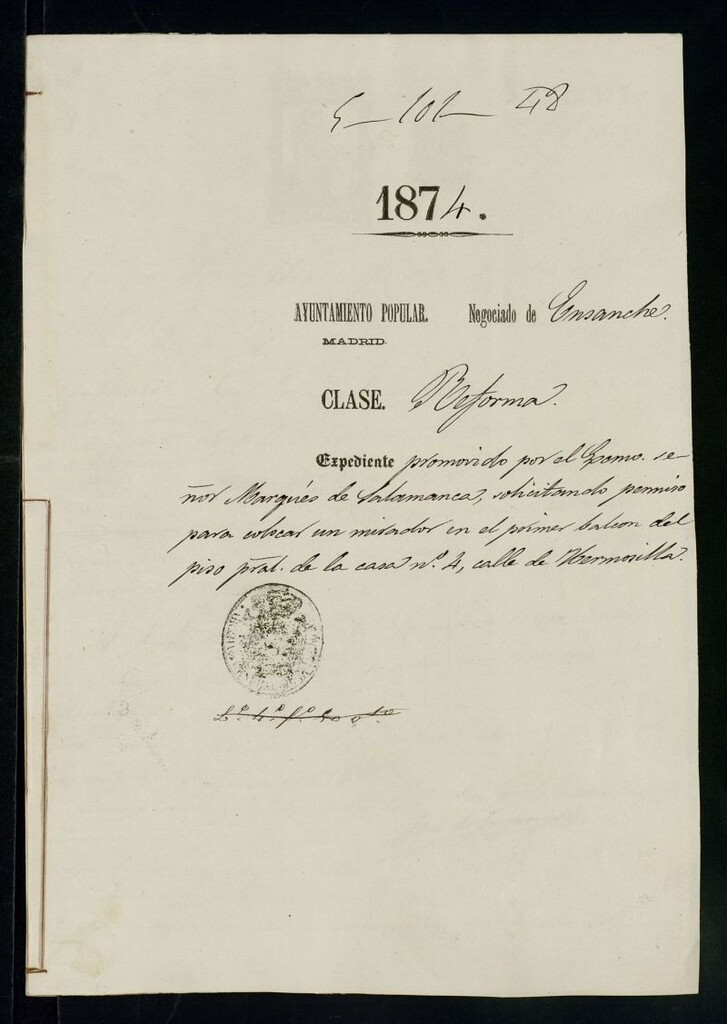 5-101-48
1874.
AYUNTAMIENTO POPULAR. Negociado de Ensanche.
MADRID.
CLASE. Reforma.
Expediente promovido por el Excmo. se-
ñor Marqués de Salamanca, solicitando permiso
para colocar un mirador en el primer balcon del
piso pral. de la casa nº. 4, calle de Hermosilla.